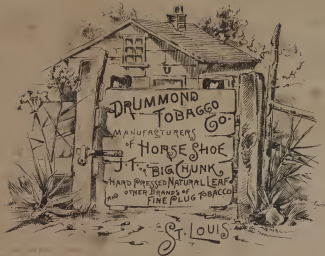 DRUMMOND
TOBACCO
CO.
MANUFACTURERS
OF HORSE SHOE
J.T. "BIG CHUNK"
HARD PRESSED NATURAL LEAF
AND OTHER BRANDS OF
FINE PLUG TOBACCO
ST. LOUIS